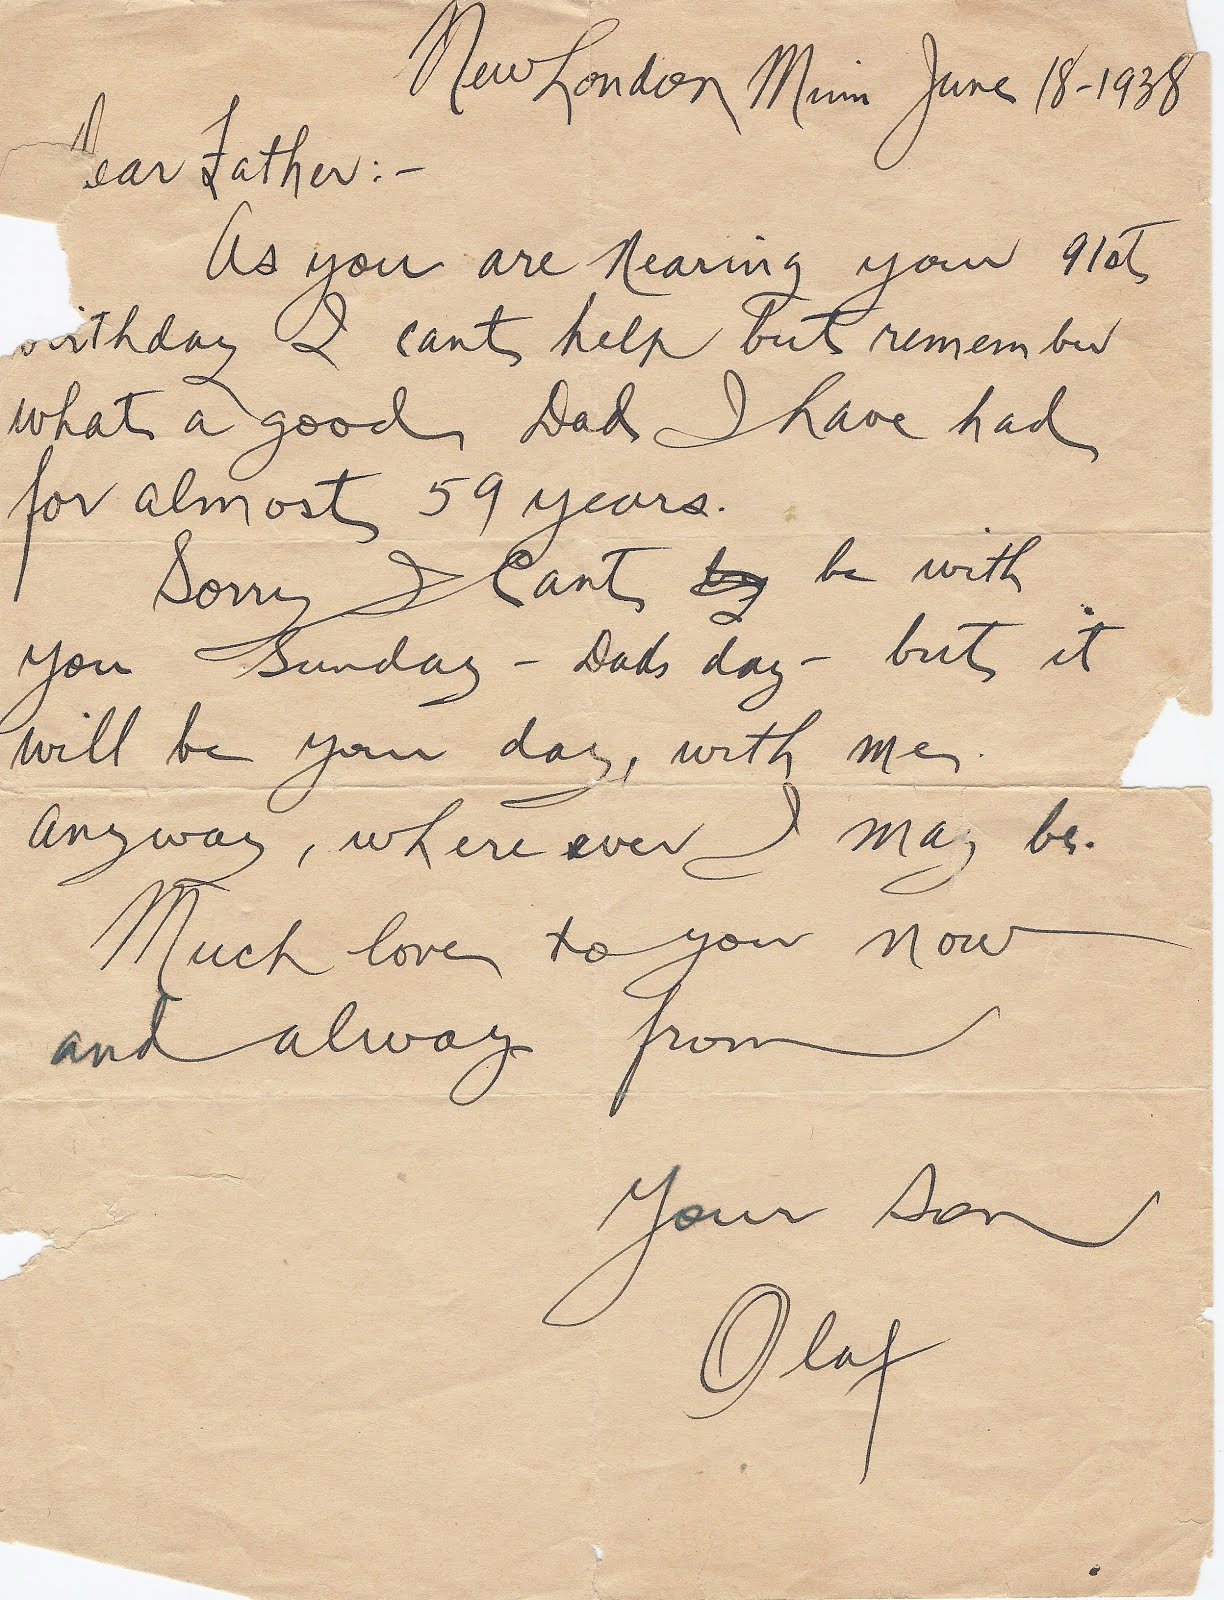 New London Minn June 18-1938
Dear Father:-
As you are nearing your 91st
birthday I cant help but remember
what a good Dad I have had
for almost 59 years.
Sorry I Cant be with
you Sunday - Dads day - but it
will be your day, with me.
anyway, where ever I may be.
Much love to you now
and alway from
Your son
Olaf